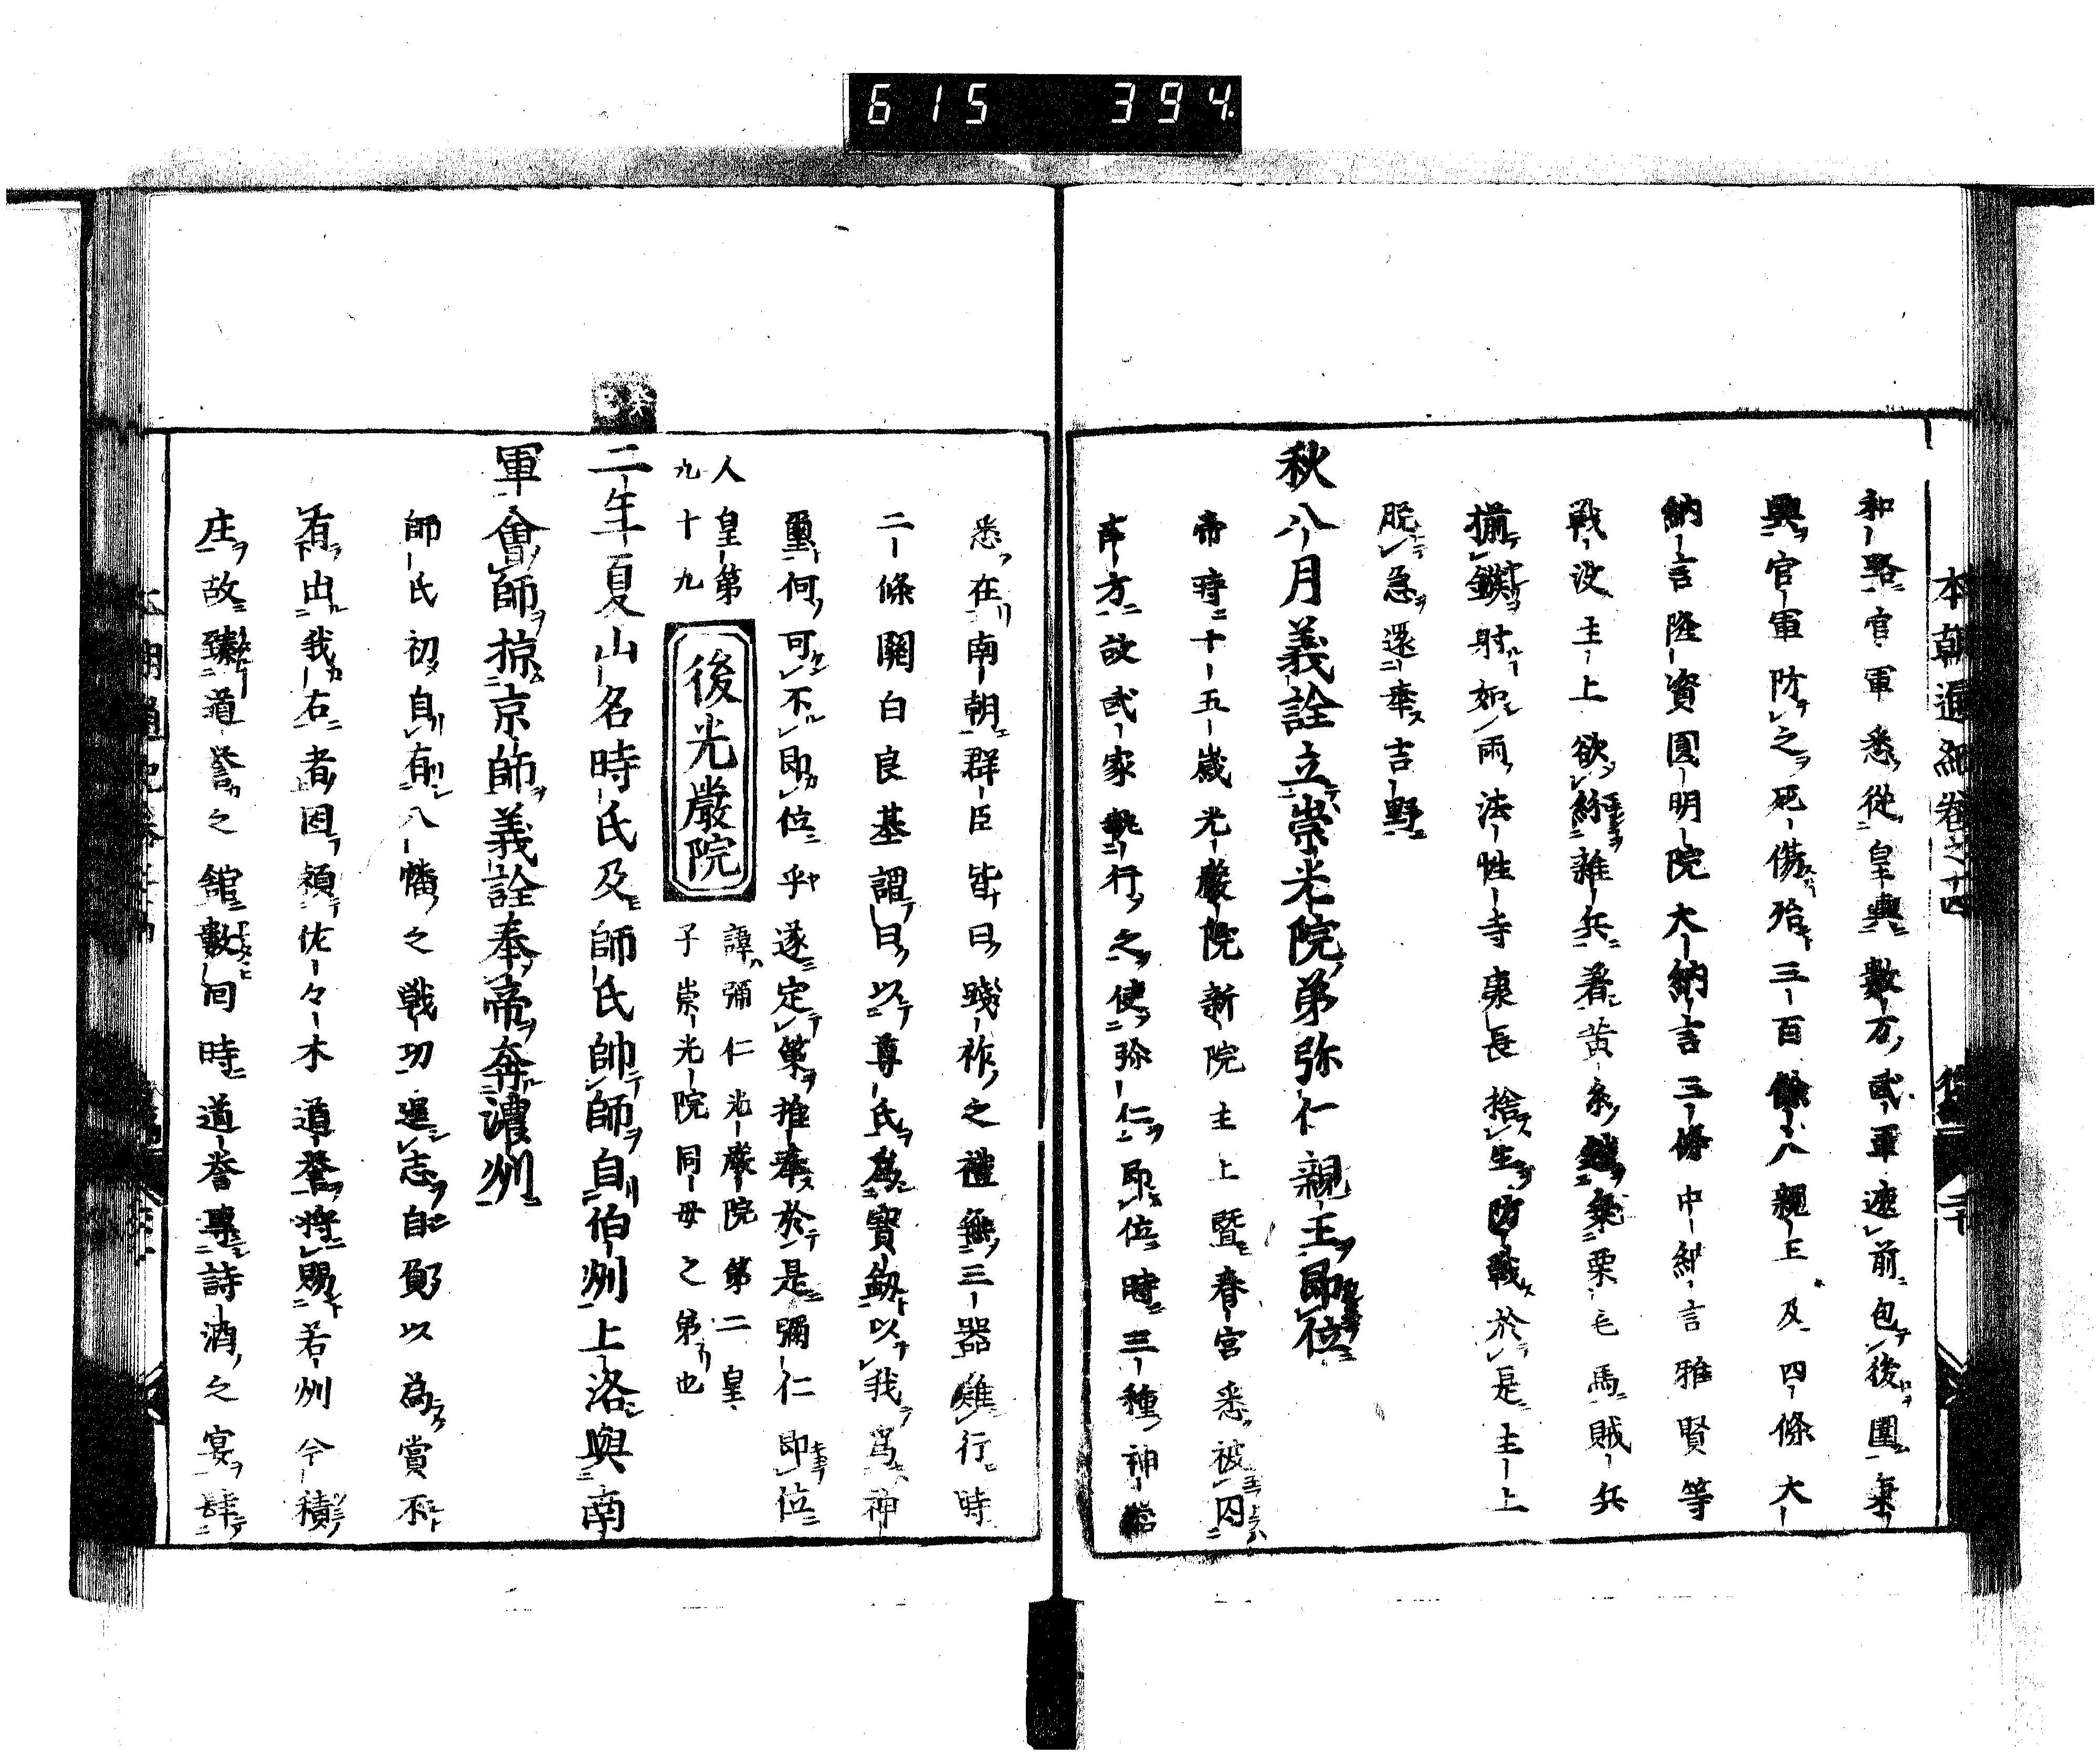 615 394
本朝通紀卷之十四
和路官軍悉從皇輿數万武軍遮前包後圍乗
輿官軍防之死傷殆三百餘人親王及四條大
納言隆資圓明院大納言三條中納言雅賢等
戰没主上欲紛雜兵著黄糸乗栗毛馬賊兵
揃鏃射如雨法性寺康長捨生防戰於是主上
脱急還幸吉野
秋八月義詮立崇光院弟弥仁親王即位
帝時十五歳光嚴院新院主上曁春宮悉被囚
南方故武家執行之使弥仁即位時三種神器
悉在南朝群臣皆曰踐祚之禮無三器難行時
二條關白良基謂曰以尊氏為寳劔以我為神
璽何可不即位乎遂定策推奉於是彌仁即位
人皇第九十九
後光嚴院
諱彌仁光嚴院第二皇子崇光院同母之弟也
癸巳
二年夏山名時氏及師氏帥師自伯州上洛與南
軍會師掠京師義詮奉帝奔濃州
師氏初自有八幡之戰功逞志自負以為賞不
有出我右者因頼佐々木道誉將賜若州今積
庄故臻道誉之舘數回時道誉專詩酒之宴肆